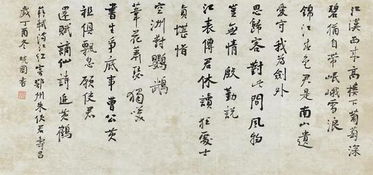 江漢西来高樓下蒲萄深
碧猶自帶岷峨雪浪
錦江春色君是南山遺
愛守我爲劍外
思歸客對此間風物
豈無情殷勤説
江表傳君休讀狂處士
真堪惜
空洲對鸚鵡
葦花蕭瑟獨笑
書生爭底事曹公黃
祖俱飄忽願使君
還賦謫仙詩追黃鶴
蘇軾滿江紅寄鄂州朱使君壽昌
歲丁酉冬